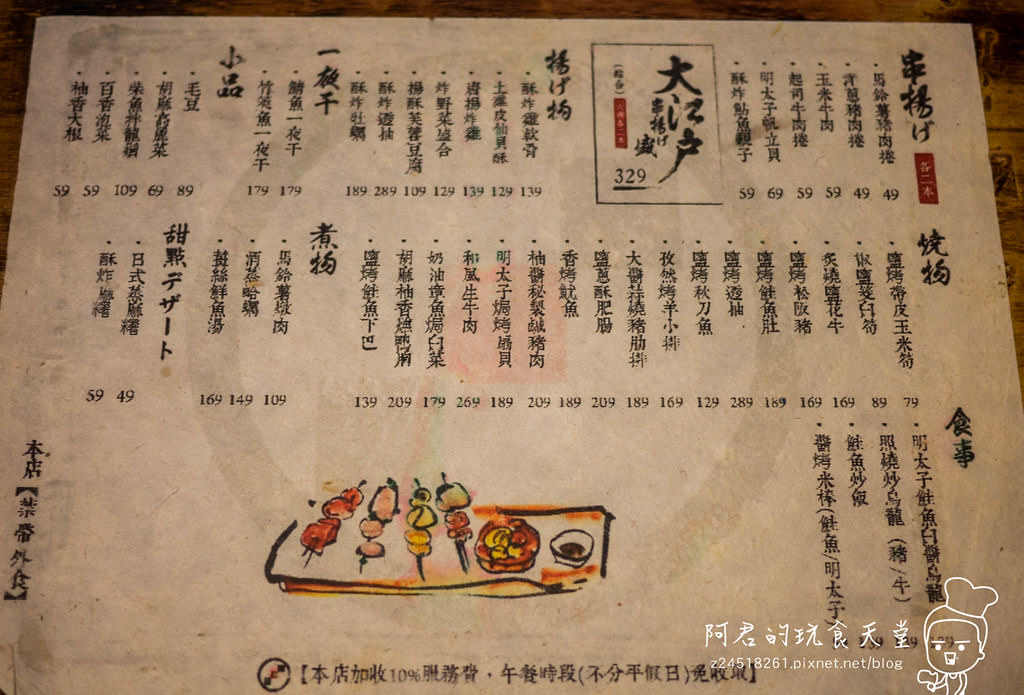 串揚げ 各二本
・馬鈴薯豬肉捲 49
・洋蔥豬肉捲 49
・玉米牛肉 59
・起司牛肉捲 59
・明太子帆立貝 69
・酥炸鮎魚親子 59
大江戶
串揚げ盛
(綜合)
329
揚げ物
・酥炸雞軟骨 139
・土蘿皮仙貝酥 129
・唐揚炸雞 139
・炸野菜盛合 129
・揚酥芙蓉豆腐 109
・酥炸透抽 289
・酥炸牡蠣 189
一夜干
・鯖魚一夜干 179
・竹筴魚一夜干 179
小品
・毛豆 89
・胡麻高麗菜 69
・柴魚拌龍鬚 109
・百香泡菜 59
・柚香大根 59
燒物
・鹽烤帶皮玉米筍 79
・椒鹽茭白筍 89
・炙燒鹽花牛 169
・鹽烤松阪豬 169
・鹽烤鮭魚肚 189
・鹽烤透抽 289
・鹽烤秋刀魚 129
・孜然烤羊小排 169
・大醬蒜燒豬肋排 189
・鹽蔥酥肥腸 209
・香烤魷魚 189
・柚醬秘製鹹豬肉 209
・明太子焗烤扇貝 189
・和風生牛肉 269
・奶油章魚焗白菜 179
・胡麻柚香燻鴨胸 209
・鹽烤鮭魚下巴 139
煮物
・馬鈴薯燉肉 109
・酒蒸蛤蠣 149
・薑絲鮮魚湯 169
甜點デザート
・日式蒸麻糬 49
・酥炸麻糬 59
食事
・明太子鮭魚白醬烏龍
・照燒炒烏龍(豬/牛)
・鮭魚炒飯
・醬烤米棒(鮭魚/明太子)
本店【禁帶外食】
【本店加收10%服務費，午餐時段(不分平假日)免收取】
阿君的玩食天堂
z24518261.pixnet.net/blog